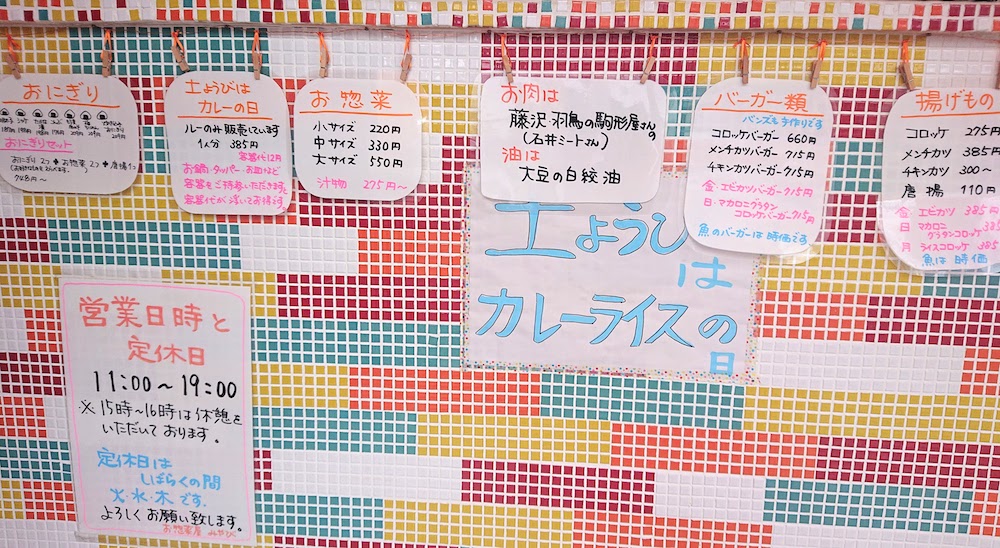 おにぎり
おにぎりセット
おにぎり 2つ + お惣菜 2つ + 唐揚1コ
748円〜
土ようびは
カレーの日
ルーのみ販売しています
1人分 385円
容器代12円
お鍋・タッパー・お皿など
容器をご持参いただきますと
容器代が浮いてお得です。
お惣菜
小サイズ 220円
中サイズ 330円
大サイズ 550円
汁物 275円〜
お肉は
藤沢 羽鳥の駒形屋さんの
(石井ミートさん)
油は
大豆の白絞油
バーガー類
バンズも手作りです
コロッケバーガー 660円
メンチカツバーガー 715円
チキンカツバーガー 715円
金・エビカツバーガー 715円
日・マカロニグラタン
コロッケバーガー 715円
魚のバーガーは時価です
揚げもの
コロッケ 275円
メンチカツ 385円
チキンカツ 300〜
唐揚 110円
金 エビカツ 385円
日 マカロニ 385
グラタンコロッケ
月 ライスコロッケ 385
魚は時価
土ようび
は
カレーライスの
日
営業日時と
定休日
11:00〜19:00
※15時〜16時は休憩を
いただいております。
定休日は
しばらくの間
火・水・木です。
よろしくお願い致します。
お惣菜屋